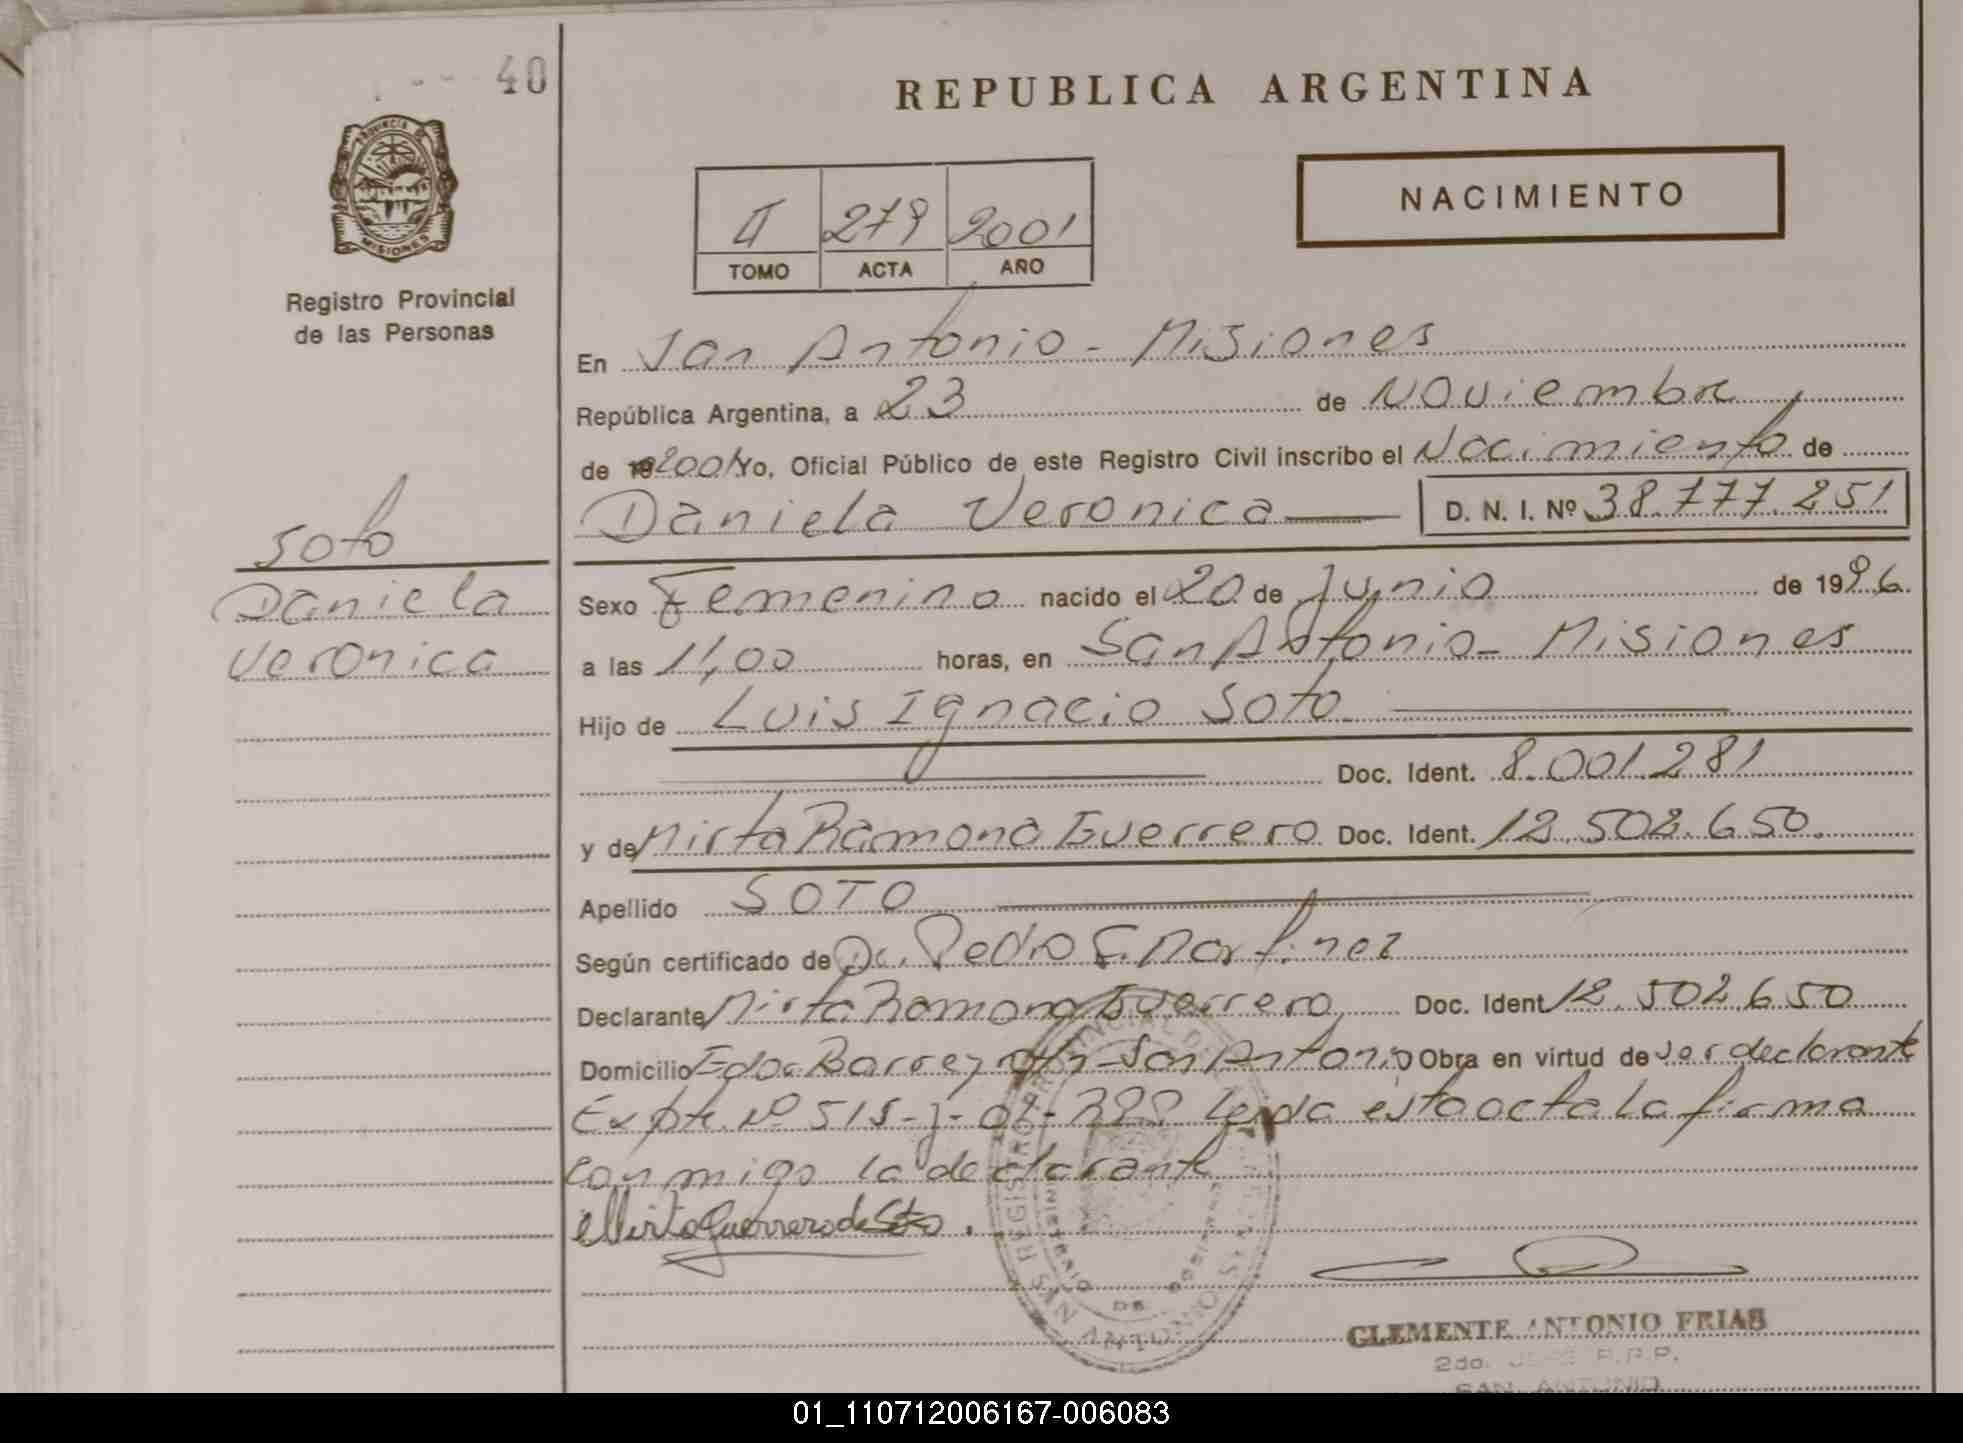 40
REPUBLICA ARGENTINA
PROVINCIA DE
MISIONES
Registro Provincial
de las Personas
II 279 2001
TOMO ACTA AÑO
NACIMIENTO
En San Antonio - Misiones
República Argentina, a 23 de Noviembre
de 19 2001 Yo, Oficial Público de este Registro Civil inscribo el Nacimiento de
Daniela Veronica D. N. I. Nº 38.777.251
Soto
Daniela
Veronica
Sexo Femenino nacido el 20 de Junio de 1996.
a las 11,00 horas, en San Antonio - Misiones
Hijo de Luis Ignacio Soto
Doc. Ident. 8.001.281
y de Mirta Ramona Guerrero Doc. Ident. 12.502.650.
Apellido SOTO
Según certificado de Dr. Pedro E. Martinez
Declarante Mirta Ramona Guerrero Doc. Ident 12.502.650
Domicilio Edoc Barrey s/n - San Antonio Obra en virtud de ser declarante
Expte. Nº 515-J-01- leida esta acta la firma
conmigo la declarante
Mirta Guerrero de Soto.
CLEMENTE ANTONIO FRIAS
2do. JEFE R.P.P.
SAN ANTONIO
01_110712006167-006083